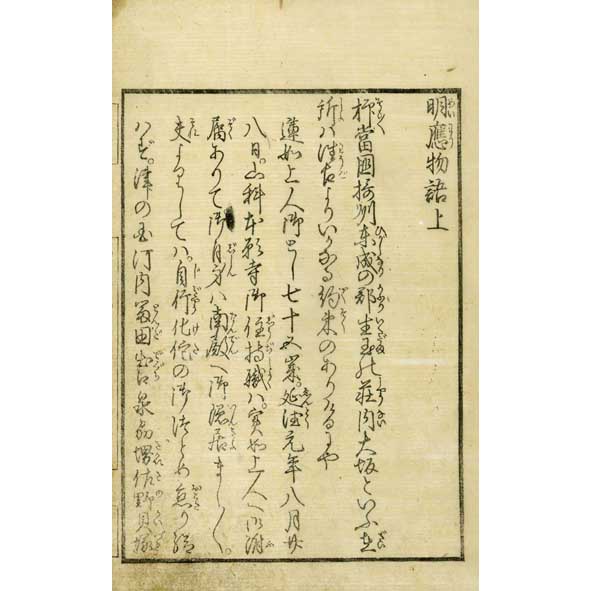 明應物語上
抑當國摂州東成の郡生玉の荘内大坂といふ在
所ハ往古よりいかなる約束のありけるにや
蓮如上人御とし七十五歳。延徳元年八月廿
八日。山科本願寺御住持職ハ。実如上人へ御附
属ありて御自身ハ南殿へ御隠居まし〱。
夫よりしてハ。自行化他の御つとめ怠り給
ハず。津の国河内富田出口泉州堺佐野貝塚